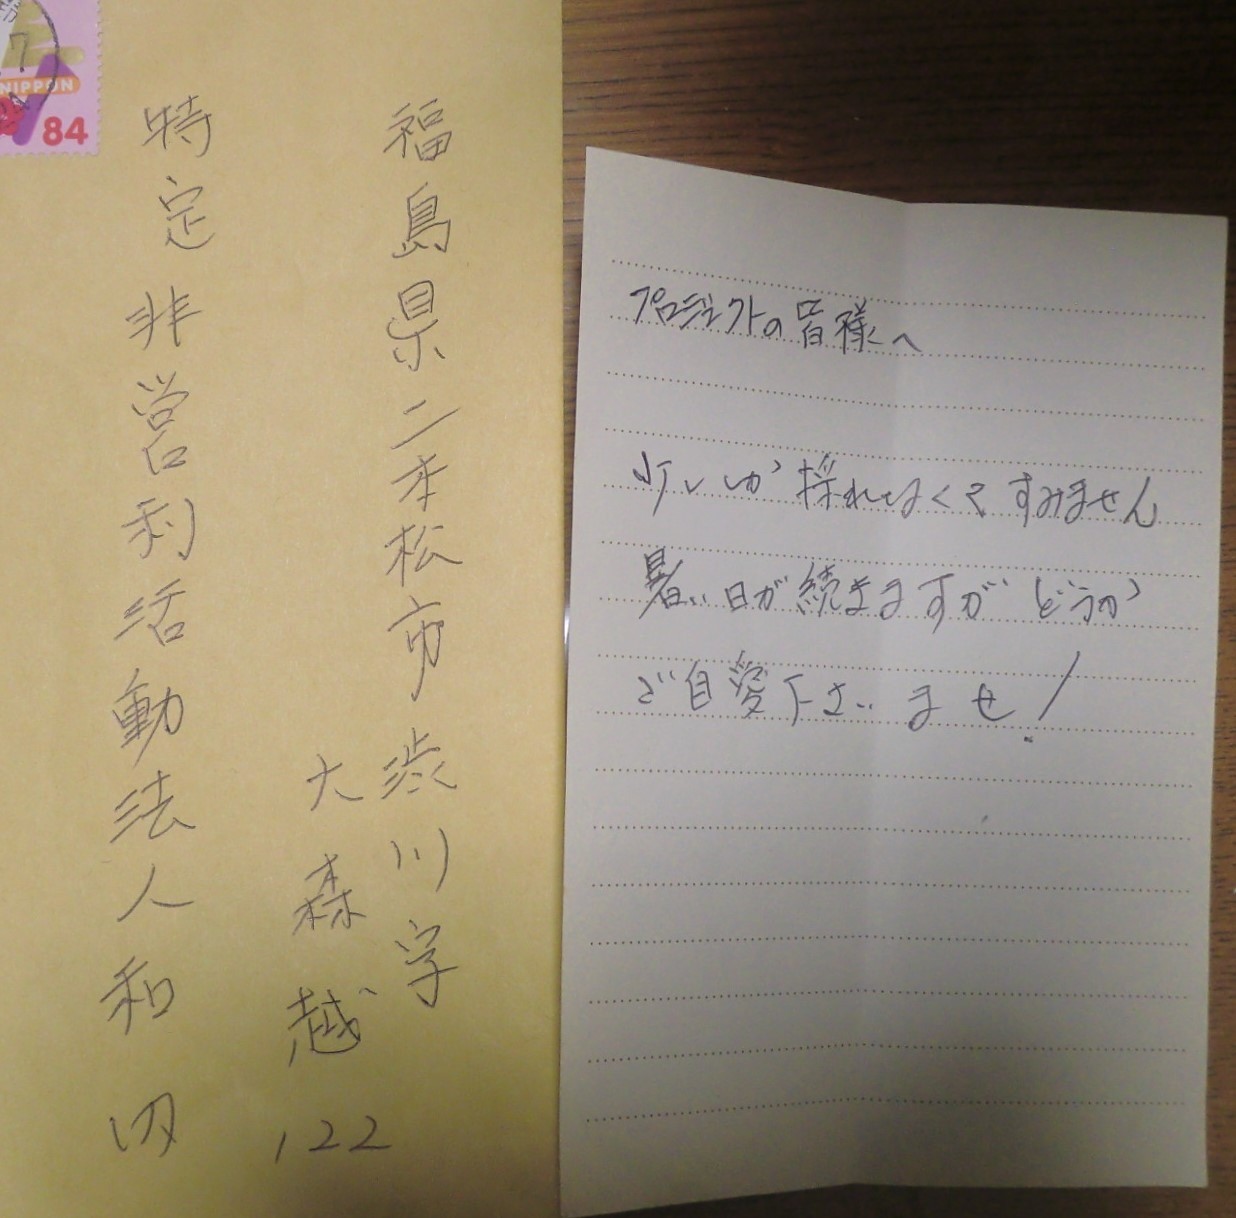 NIPPON
84
福島県二本松市渋川字
大森越
122
特定非営利活動法人和
プロジェクトの皆様へ
少しか採れなくてすみません
暑い日が続きますがどうか
ご自愛下さいませ!